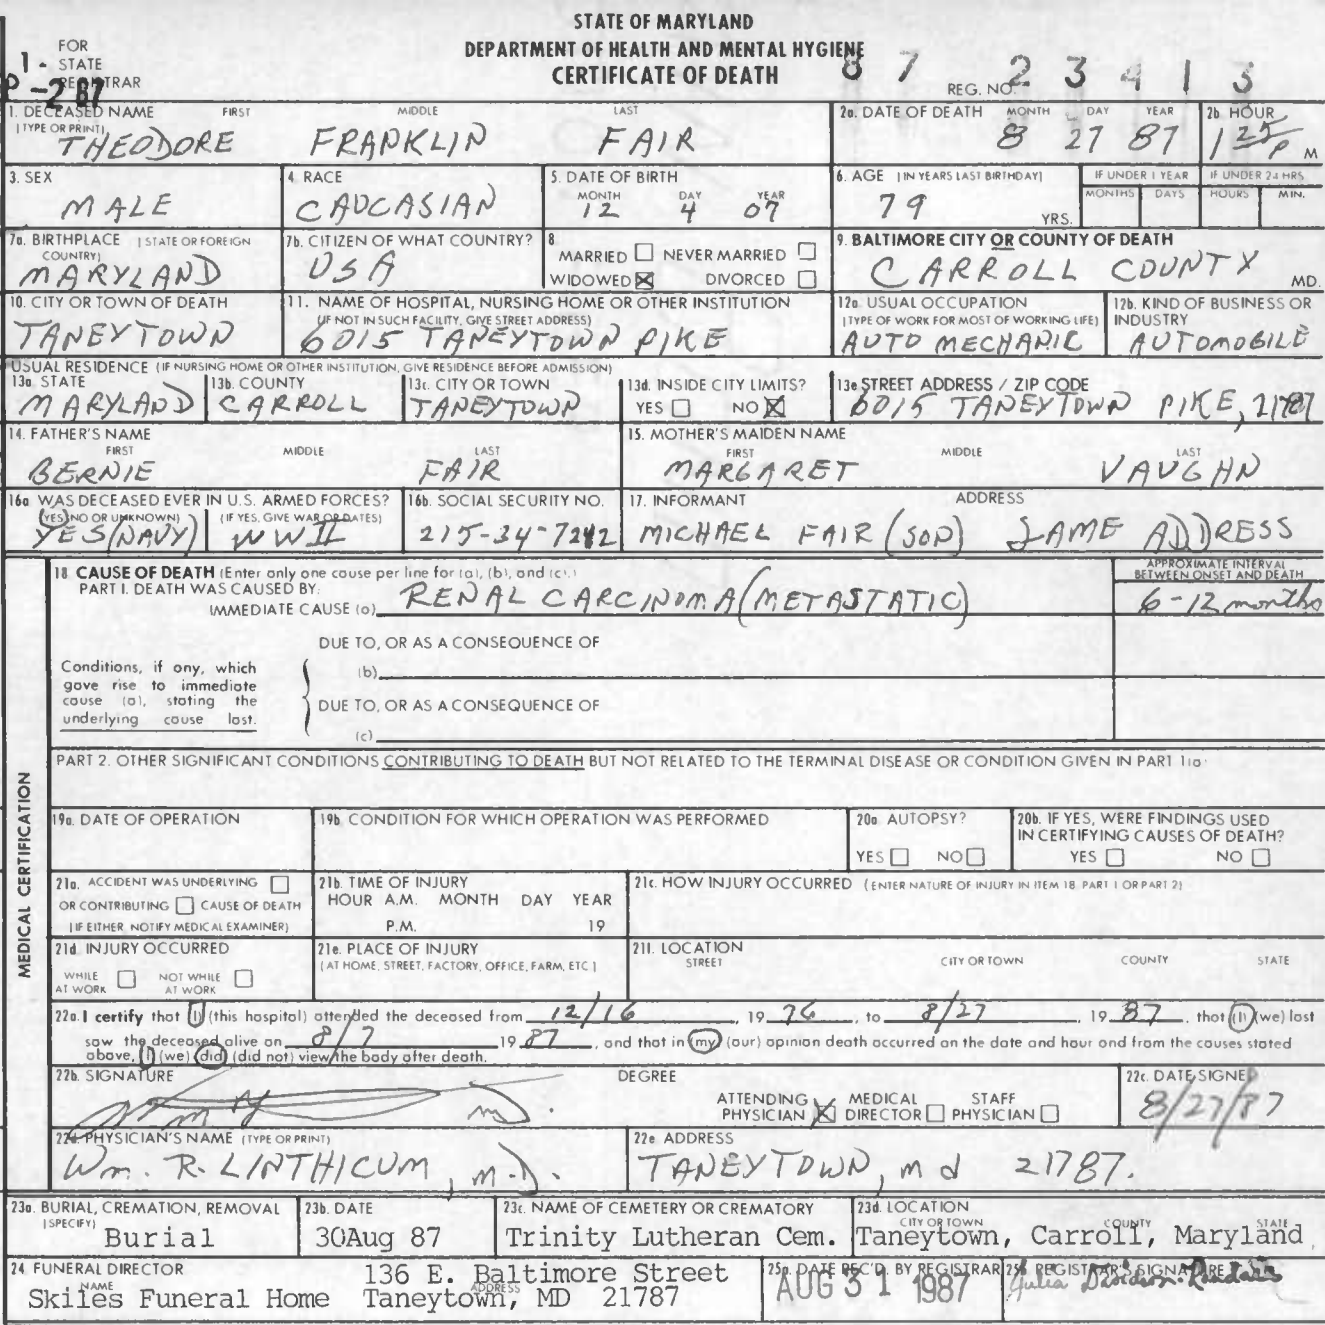 STATE OF MARYLAND
DEPARTMENT OF HEALTH AND MENTAL HYGIENE
CERTIFICATE OF DEATH
1 - FOR STATE REGISTRAR
REG. NO. 87 23413
1. DECEASED NAME FIRST MIDDLE LAST
(TYPE OR PRINT)
THEODORE FRANKLIN FAIR
2a. DATE OF DEATH MONTH DAY YEAR
8 27 87
2b. HOUR
1 25 P M
3. SEX
MALE
4. RACE
CAUCASIAN
5. DATE OF BIRTH
MONTH DAY YEAR
12 4 07
6. AGE (IN YEARS LAST BIRTHDAY)
79 YRS.
IF UNDER 1 YEAR
MONTHS DAYS
IF UNDER 24 HRS
HOURS MIN.
7a. BIRTHPLACE (STATE OR FOREIGN COUNTRY)
MARYLAND
7b. CITIZEN OF WHAT COUNTRY?
USA
8
MARRIED NEVER MARRIED
WIDOWED X DIVORCED
9. BALTIMORE CITY OR COUNTY OF DEATH
CARROLL COUNTY MD.
10. CITY OR TOWN OF DEATH
TANEYTOWN
11. NAME OF HOSPITAL, NURSING HOME OR OTHER INSTITUTION
(IF NOT IN SUCH FACILITY, GIVE STREET ADDRESS)
6015 TANEYTOWN PIKE
12a. USUAL OCCUPATION
(TYPE OF WORK FOR MOST OF WORKING LIFE)
AUTO MECHANIC
12b. KIND OF BUSINESS OR INDUSTRY
AUTOMOBILE
USUAL RESIDENCE (IF NURSING HOME OR OTHER INSTITUTION, GIVE RESIDENCE BEFORE ADMISSION)
13a. STATE
MARYLAND
13b. COUNTY
CARROLL
13c. CITY OR TOWN
TANEYTOWN
13d. INSIDE CITY LIMITS?
YES NO X
13e STREET ADDRESS / ZIP CODE
6015 TANEYTOWN PIKE, 21787
14. FATHER'S NAME
FIRST MIDDLE LAST
BERNIE FAIR
15. MOTHER'S MAIDEN NAME
FIRST MIDDLE LAST
MARGARET VAUGHN
16a WAS DECEASED EVER IN U.S. ARMED FORCES?
(YES, NO OR UNKNOWN) (IF YES, GIVE WAR OR DATES)
YES (NAVY) WWII
16b. SOCIAL SECURITY NO.
215-34-7242
17. INFORMANT ADDRESS
MICHAEL FAIR (SON) SAME ADDRESS
MEDICAL CERTIFICATION
18 CAUSE OF DEATH (Enter only one cause per line for (a), (b), and (c).)
PART I. DEATH WAS CAUSED BY:
IMMEDIATE CAUSE (a) RENAL CARCINOMA (METASTATIC)
APPROXIMATE INTERVAL
BETWEEN ONSET AND DEATH
6-12 months
DUE TO, OR AS A CONSEQUENCE OF
(b)
Conditions, if any, which
gave rise to immediate
cause (a), stating the
underlying cause last.
DUE TO, OR AS A CONSEQUENCE OF
(c)
PART 2. OTHER SIGNIFICANT CONDITIONS CONTRIBUTING TO DEATH BUT NOT RELATED TO THE TERMINAL DISEASE OR CONDITION GIVEN IN PART 1(a)
19a. DATE OF OPERATION
19b. CONDITION FOR WHICH OPERATION WAS PERFORMED
20a AUTOPSY?
YES NO
20b. IF YES, WERE FINDINGS USED
IN CERTIFYING CAUSES OF DEATH?
YES NO
21a. ACCIDENT WAS UNDERLYING
OR CONTRIBUTING CAUSE OF DEATH
(IF EITHER, NOTIFY MEDICAL EXAMINER)
21b. TIME OF INJURY
HOUR A.M. MONTH DAY YEAR
P.M. 19
21c. HOW INJURY OCCURRED (ENTER NATURE OF INJURY IN ITEM 18. PART 1 OR PART 2)
21d. INJURY OCCURRED
WHILE AT WORK NOT WHILE AT WORK
21e. PLACE OF INJURY
(AT HOME, STREET, FACTORY, OFFICE, FARM, ETC.)
21f. LOCATION
STREET CITY OR TOWN COUNTY STATE
22a. I certify that (I) (this hospital) attended the deceased from 12/16, 19 76, to 8/27, 19 87, that (I) (we) last
saw the deceased alive on 8/7 19 87, and that in (my) (our) opinion death occurred on the date and hour and from the causes stated
above, (I) (we) (did) (did not) view the body after death.
22b. SIGNATURE DEGREE
M.D.
ATTENDING PHYSICIAN X MEDICAL DIRECTOR STAFF PHYSICIAN
22c. DATE SIGNED
8/27/87
22d PHYSICIAN'S NAME (TYPE OR PRINT)
Wm. R. LINTHICUM, M.D.
22e ADDRESS
TANEYTOWN, md 21787.
23a. BURIAL, CREMATION, REMOVAL
(SPECIFY)
Burial
23b. DATE
30Aug 87
23c. NAME OF CEMETERY OR CREMATORY
Trinity Lutheran Cem.
23d. LOCATION
CITY OR TOWN COUNTY STATE
Taneytown, Carroll, Maryland
24. FUNERAL DIRECTOR
NAME ADDRESS
Skiles Funeral Home
136 E. Baltimore Street
Taneytown, MD 21787
25a. DATE REC'D. BY REGISTRAR
AUG 31 1987
25b REGISTRAR'S SIGNATURE
Julia Davidson-Randall